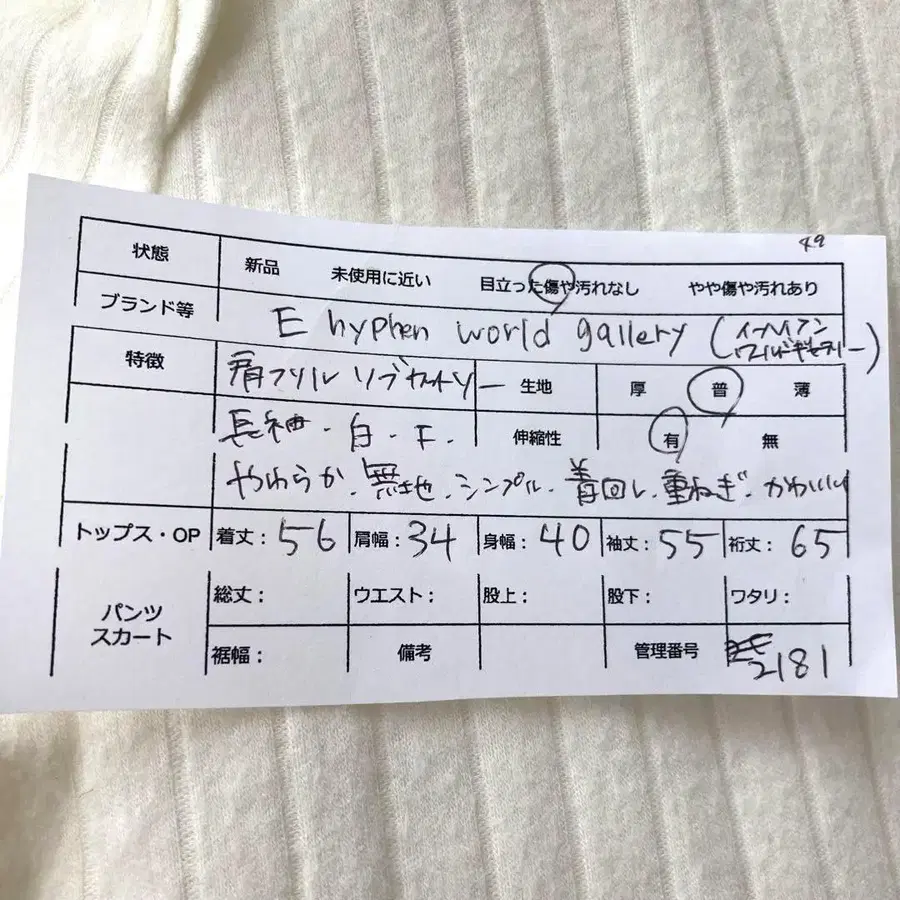 49
状態 新品 未使用に近い 目立った傷や汚れなし やや傷や汚れあり
ブランド等 E hyphen world gallery (イーハイフン
ワールドギャラリー)
特徴 肩フリル リブカットソー 生地 厚 普 薄
長袖・白・F・ 伸縮性 有 無
やわらか・無地・シンプル・着回し・重ねぎ・かわいい
トップス・OP 着丈：56 肩幅：34 身幅：40 袖丈：55 裄丈：65
パンツ
スカート 総丈： ウエスト： 股上： 股下： ワタリ：
裾幅： 備考 管理番号 2181